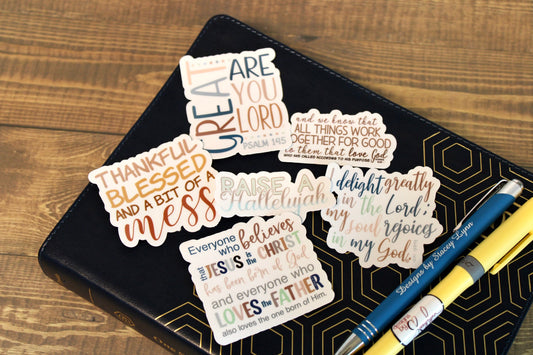 GREAT
ARE
YOU
LORD
PSALM 145
and we know that
ALL THINGS WORK
TOGETHER FOR GOOD
to them that love God
WHO ARE CALLED ACCORDING TO HIS PURPOSE
THANKFUL
BLESSED
AND A BIT OF A
mess
RAISE A
Hallelujah
I delight greatly
in the Lord;
my soul rejoices
in my God.
Everyone
who believes
that JESUS is the CHRIST
has been born of God
and everyone who
LOVES the FATHER
also loves the one born of Him.
Designs by Stacey Lynn